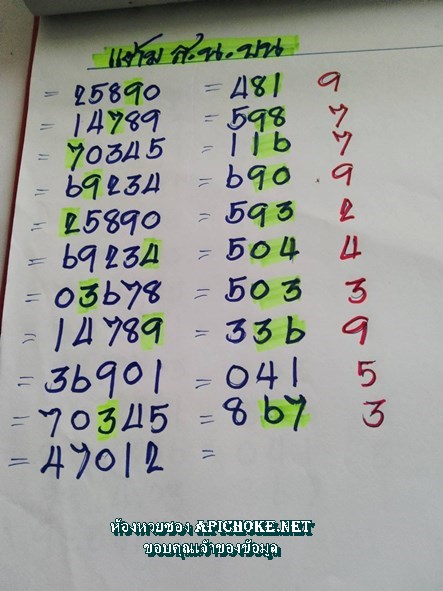 แต้ม ส.น. บน
= 25890 = 481 9
= 14789 = 598 7
= 70345 = 116 7
= 69234 = 690 9
= 25890 = 593 2
= 69234 = 504 4
= 03678 = 503 3
= 14789 = 336 9
= 36901 = 041 5
= 70345 = 867 3
= 47012 =
ห้องหวยซอง APICHOKE.NET
ขอบคุณเจ้าของข้อมูล